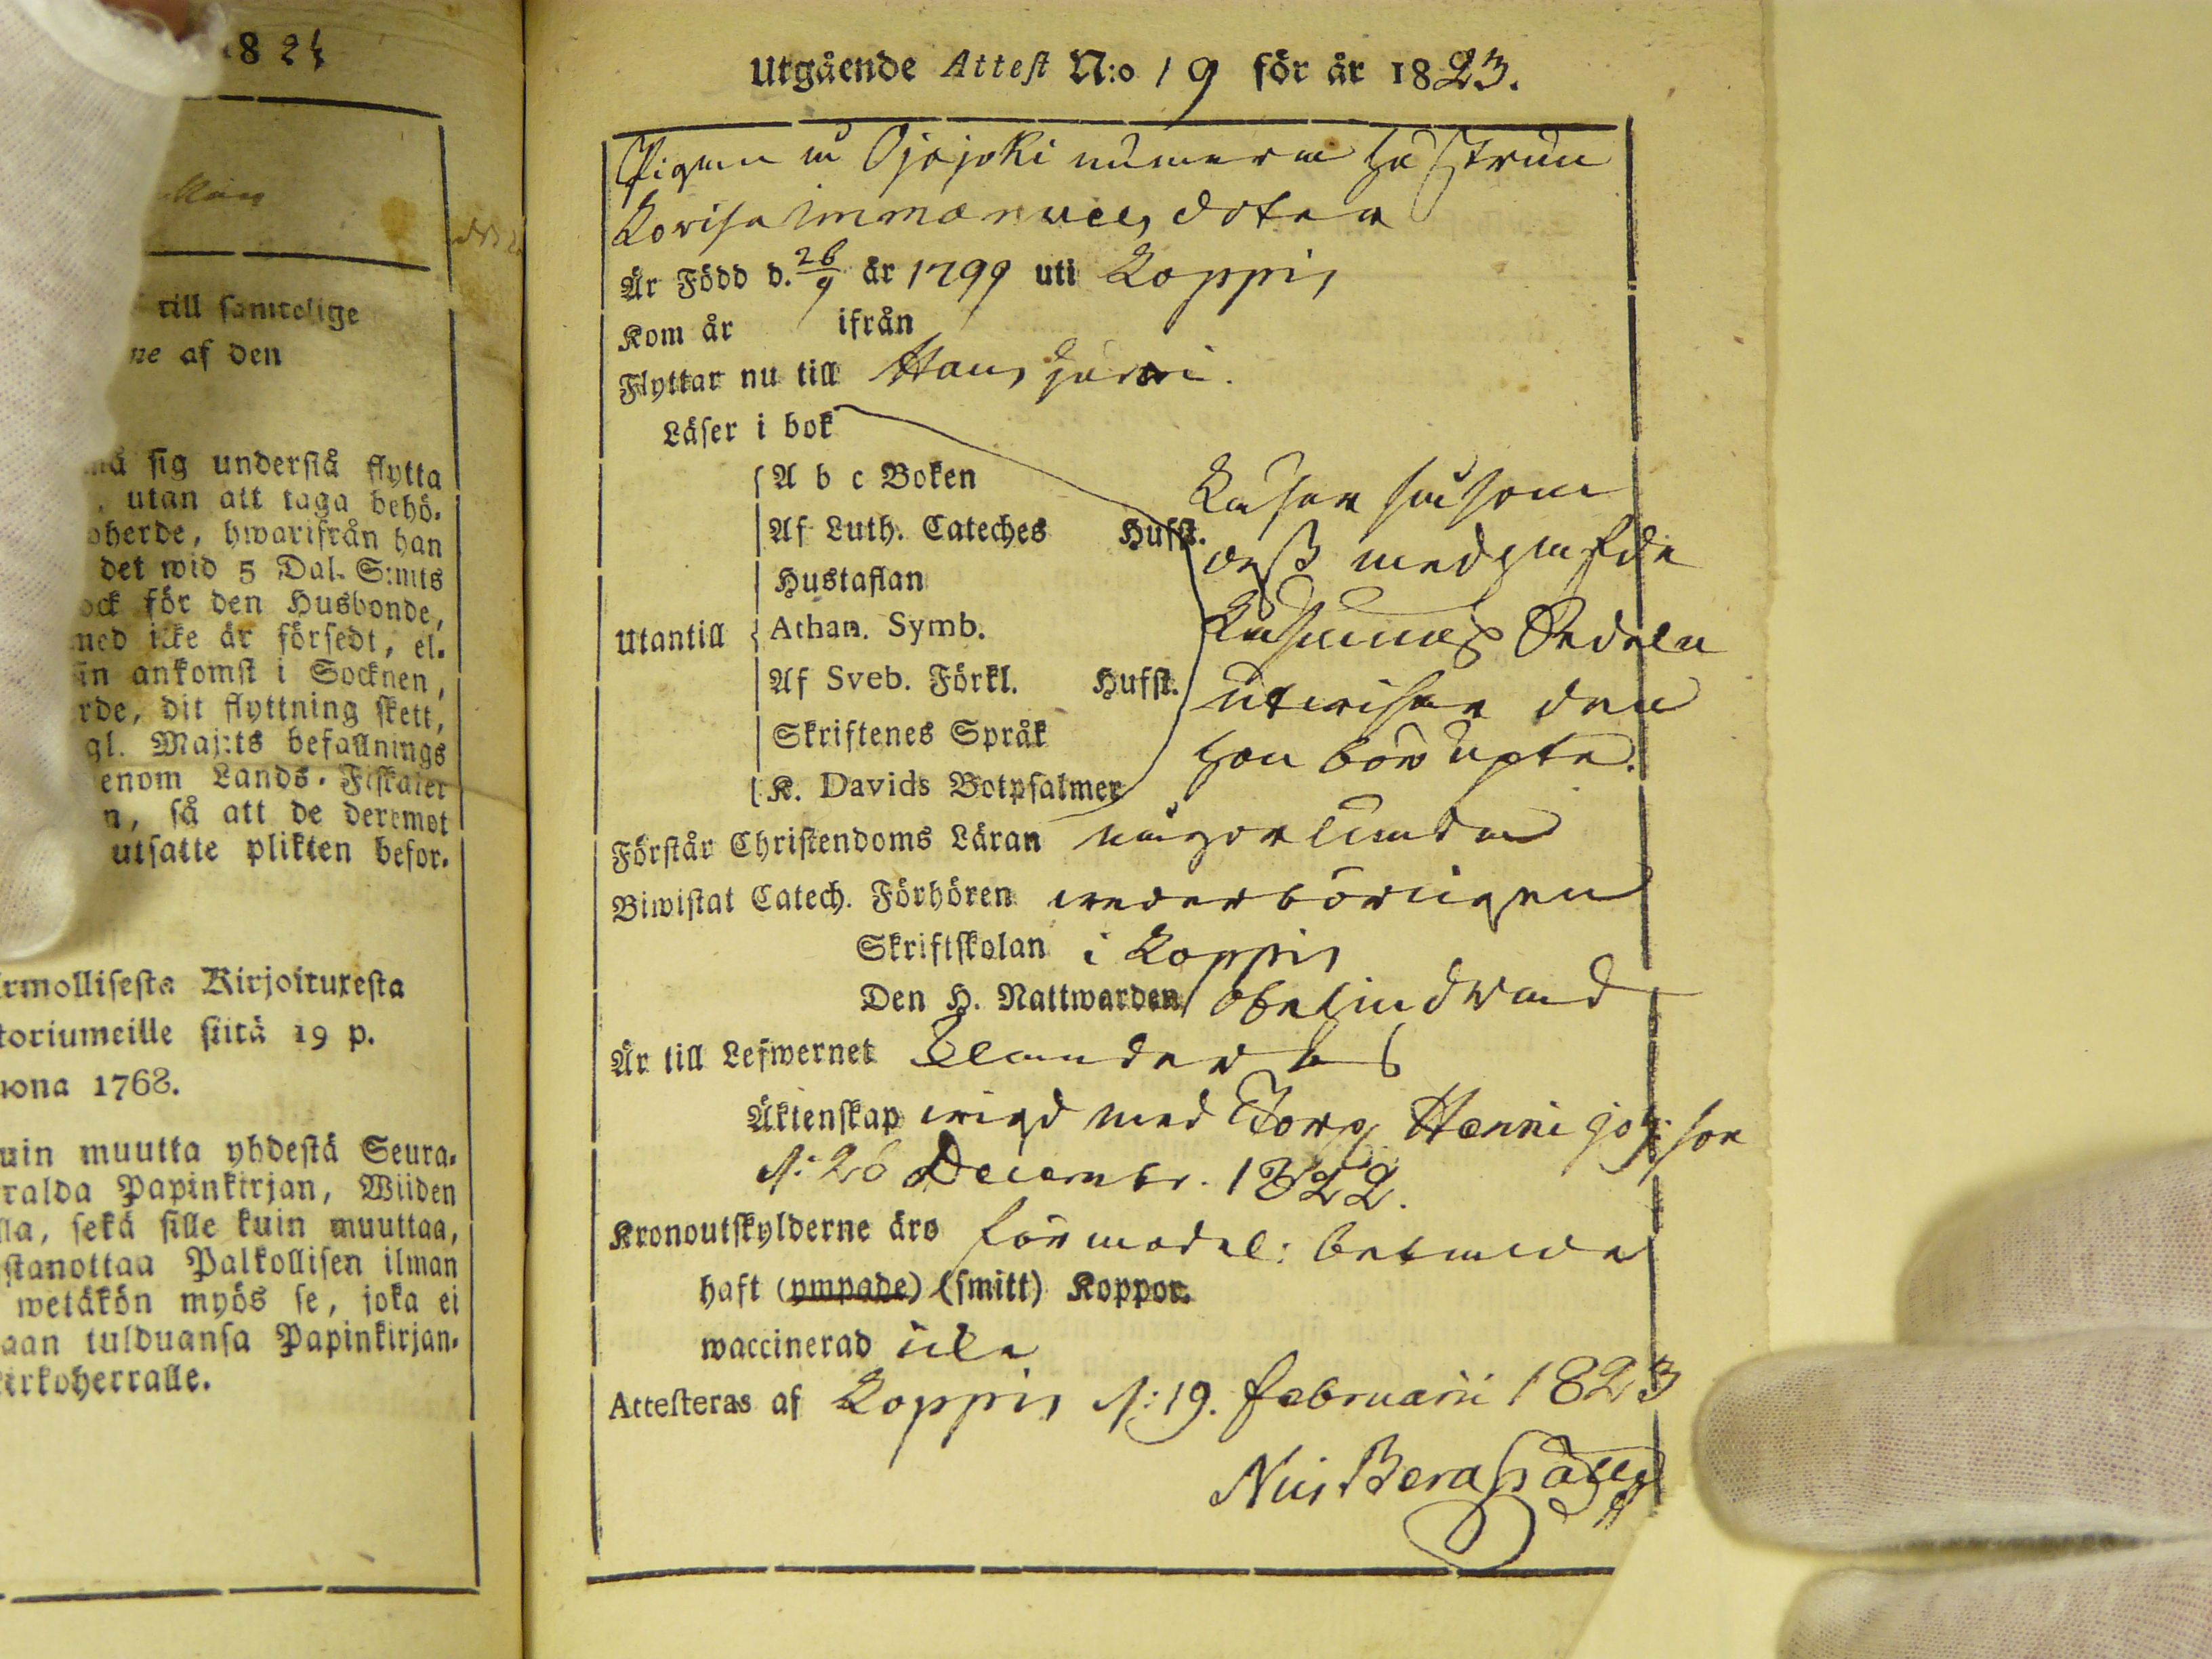 1824
till samtelige
ne af den
må sig understå flytta
, utan att taga behö-
oherde, hwarifrån han
det wid 5 Dal. S:mts
ock för den Husbonde,
med icke är försedt, el-
in ankomst i Socknen,
rde, dit flyttning skett,
gl. Maj:ts befallnings
enom Lands-Fiskaler
n, så att de deremot
utsatte plikten befor-
rmollisesta Kirjoituxesta
toriumeille siitä 19 p.
uona 1768.
uin muutta yhdestä Seura-
ralda Papinkirjan, Wiiden
lla, sekä sille kuin muuttaa,
stanottaa Palkollisen ilman
wetäkön myös se, joka ei
aan tulduansa Papinkirjan-
kirkoherralle.
Utgående Attest N:o 19 för år 1823.
Pigan i Ojajoki numera hustrun
Lovisa Immanuels dotter
Är Född d. 26/9 år 1799 uti Loppis
Kom år ifrån
Flyttar nu till Haus
Läser i bok
A b c Boken
Läser såsom
Af Luth. Cateches Hufst.
dess medhafde
Hustaflan
Utantill Athan. Symb.
Läsnings Sedeln
Af Sveb. Förkl. Hufst.
utwisar den
Skriftenes Språk
hon bör
K. Davids Botpsalmer
Förstår Christendoms Läran någorlunda
Biwistat Catech. Förhören wederbörligen
Skriftskolan i Loppis
Den H. Nattwarden obehindrad
Är till Lefwernet
Äktenskap wigd med Torp. Henric Joh: son
d: 26 Decembr. 1822.
Kronoutskylderne äro förmodel: betalde
haft (ympade) (smitt) Koppor.
waccinerad icke
Attesteras af Loppis d: 19. Februarii 1823